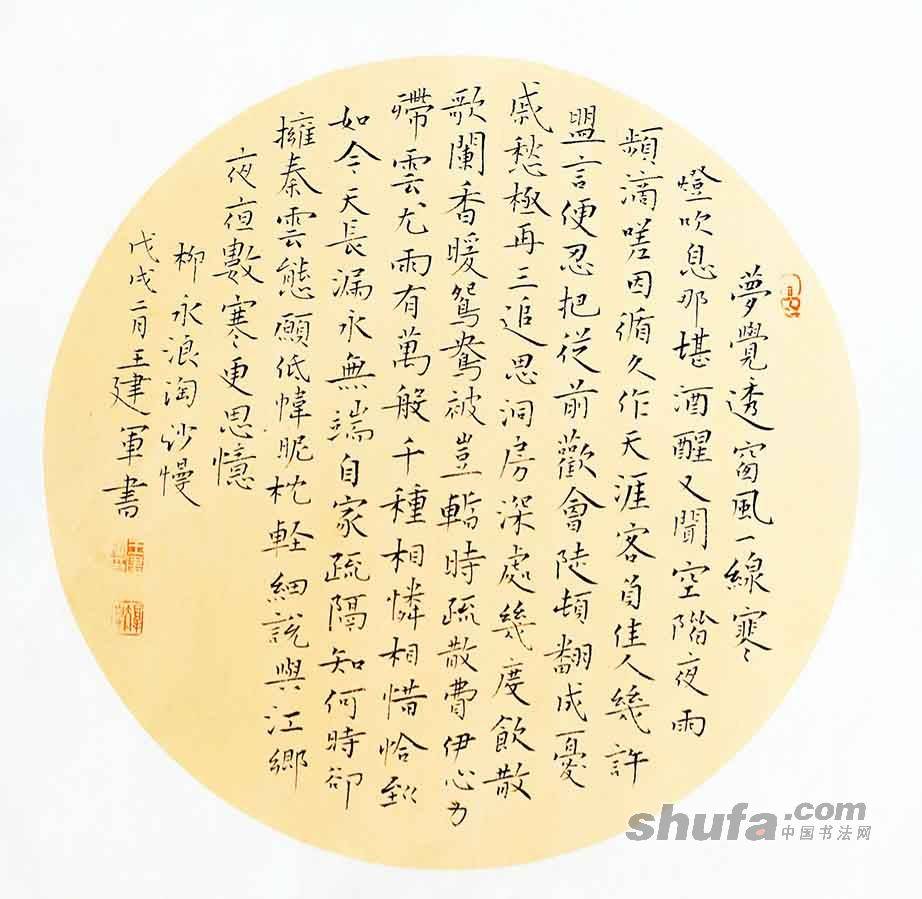 夢覺透窗風一線寒
燈吹息那堪酒醒又聞空階夜雨
頻滴嗟因循久作天涯客負佳人幾許
盟言便忍把從前歡會陡頓翻成憂
戚愁極再三追思洞房深處幾度飲散
歌闌香暖鴛鴦被豈暫時疏散費伊心力
殢雲尤雨有萬般千種相憐相惜恰到
如今天長漏永無端自家疏隔知何時卻
擁秦雲態願低幃昵枕輕細說與江鄉
夜夜數寒更思憶
柳永浪淘沙慢
戊戌二月王建軍書
shufa.com
中国书法网